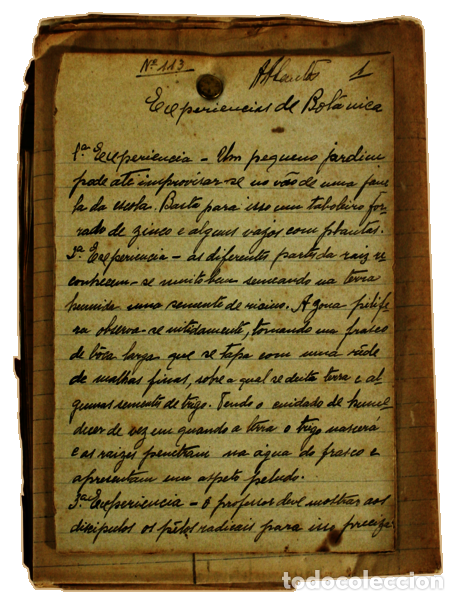 Nº 113
1
Experiencias de Botânica
1ª Experiencia – Um pequeno jardim
pode até improvisar-se no vão de uma jane
la da escola. Basta para isso um taboleiro for
rado de zinco e alguns vasos com plantas.
2ª Experiencia – as diferentes partes da raiz re
conhecem-se muito bem semeando na terra
humida uma semente de ricino. A zona pelife
ra observa-se nitidamente, tomando um frasco
de bôca larga que se tapa com uma rêde
de malhas finas, sobre a qual se deita terra e al
gumas semente de trigo. Tendo o cuidado de hume
decer de vez em quando a terra o trigo nascera
e as raizes penetram na água do frasco e
apresentam um aspeto peludo.
3ª Experiencia – O professor deve mostrar aos
discipulos os pêlos radicais para isso precisa
todocoleccion